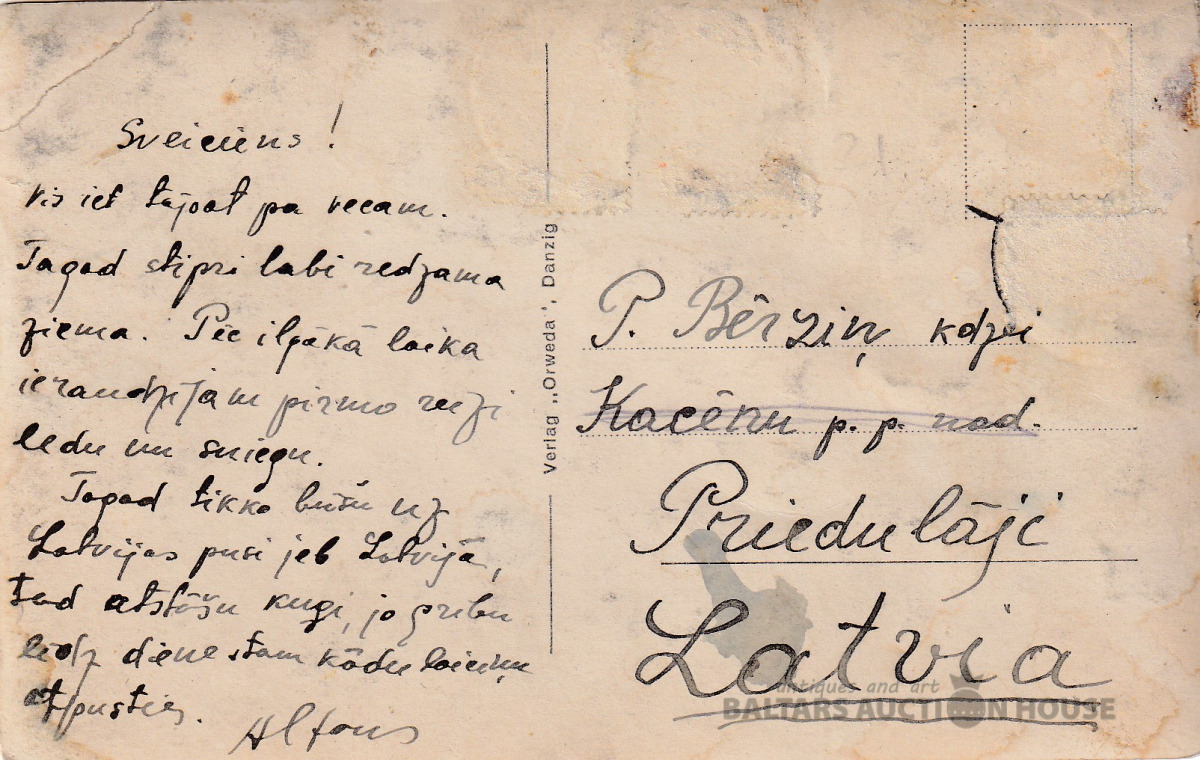 Sveiciens!
Vis iet tāpat pa vecam.
Tagad stipri labi redzama
ziema. Pēc ilgākā laika
ieraudzījām pirmo reizi
ledu un sniegu.
Tagad tikko būšu uz
Latvijas pusi jeb Latvijā,
tad atstāšu kuģi, jo gribu
līdz dienestam kādu laiciņu
atpūsties.
Alfons
Verlag „Orweda', Danzig
P. Bērziņ kdzei
Kacēnu p. p. nod.
Priedulāji
Latvia
antiques and art
BALTARS AUCTION HOUSE